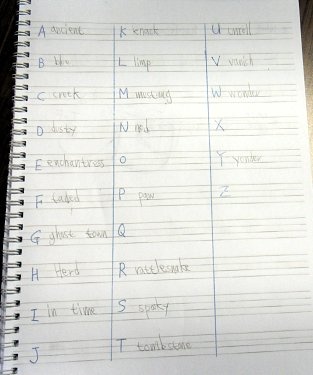 A ancient
B blue
C creek
D dusty
E enchantress
F faded
G ghost town
H Herd
I in time
J
K knack
L limp
M mustang
N
O
P paw
Q
R rattlesnake
S spooky
T tombstone
U unroll
V vanish
W wonder
X
Y yonder
Z